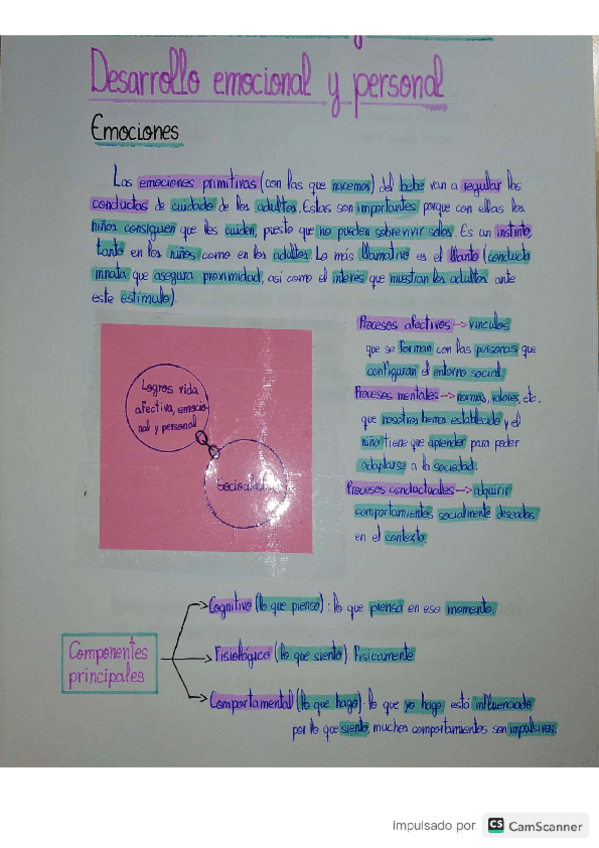 Desarrollo emocional y personal
Emociones
Las emociones primitivas (con las que nacemos) del bebé van a regular las
conductas de cuidado de los adultos. Estas son importantes porque con ellas los
niños consiguen que les cuiden, puesto que no pueden sobrevivir solos. Es un instinto,
tanto en los niños como en los adultos. Lo más llamativo es el llanto (conducta
innata que asegura proximidad, así como el interés que muestran los adultos ante
este estímulo).
Logros vida
afectiva, emocio-
nal y personal
Procesos afectivos -> vínculos
que se forman con las personas que
configuran el entorno social.
Procesos mentales -> normas, valores, etc.
que nosotros hemos establecido y el
niño tiene que aprender para poder
adaptarse a la sociedad.
Procesos conductuales -> adquirir
comportamientos socialmente deseados
en el contexto.
Componentes
principales
Cognitivo (lo que pienso): lo que piensa en ese momento.
Fisiológico (lo que siento) físicamente
Comportamental (lo que hago): lo que yo hago, está influenciado
por lo que siento, muchos comportamientos son impulsivos.
Impulsado por CS CamScanner